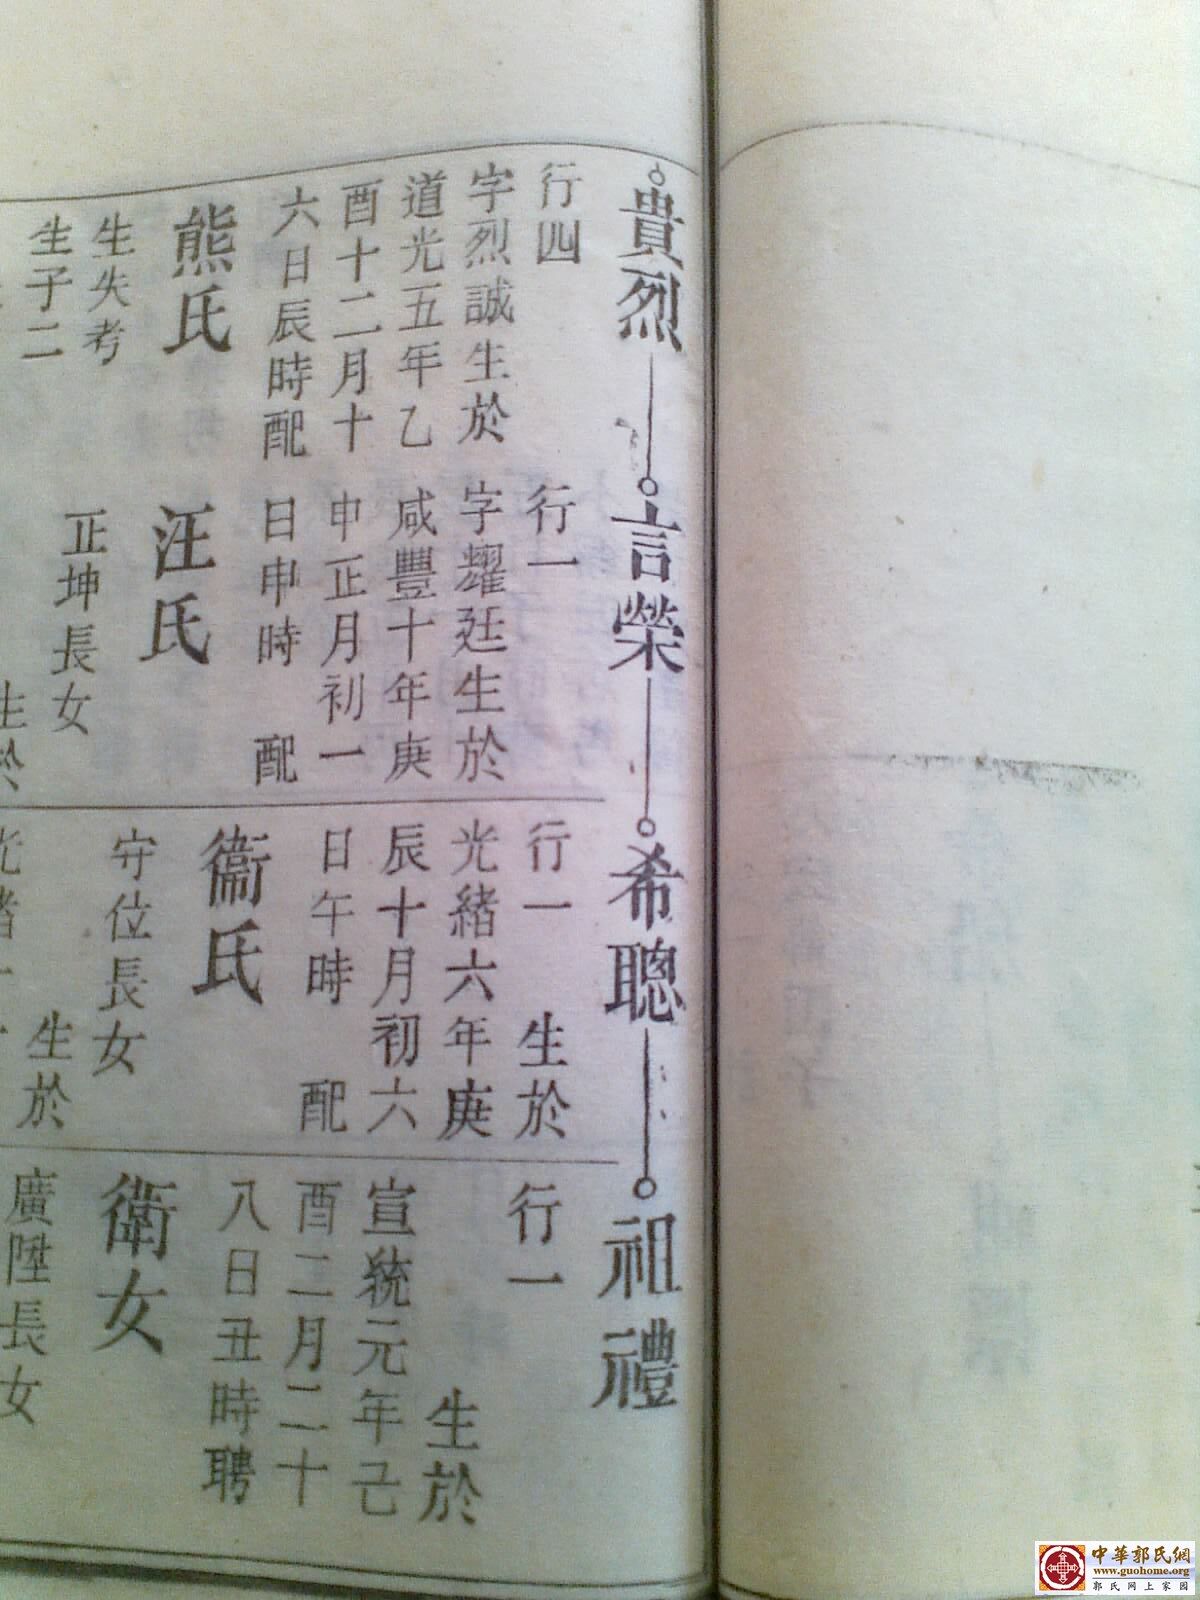 貴烈
行四
字烈誠生於
道光五年乙
酉十二月十
六日辰時配
熊氏
生失考
生子二
言榮
行一
字耀廷生於
咸豐十年庚
申正月初一
日申時 配
汪氏
正坤長女
生於
希聰
行一 生於
光緒六年庚
辰十月初六
日午時 配
衞氏
守位長女
生於
祖禮
行一
生於
宣統元年己
酉二月二十
八日丑時聘
衛女
廣陞長女
中華郭氏網
www.guohome.org
郭氏网上家园